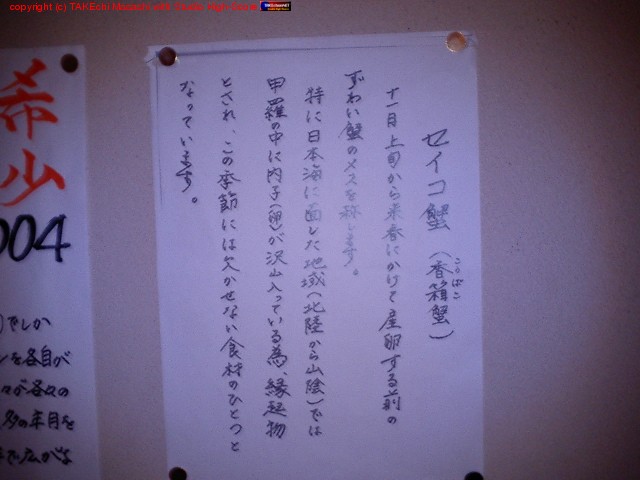 copyright (c) TAKEchi
セイコ蟹（香箱蟹）
こうばこ
十一月上旬から来春にかけて産卵する前の
ずわい蟹のメスを称します。
特に日本海に面した地域（北陸から山陰）では
甲羅の中に内子（卵）が沢山入っている為、縁起物
とされ、この季節には欠かせない食材のひとつと
なっています。
希少
004
でしか
を各自が
々が各々の
多の年目を
で広がな